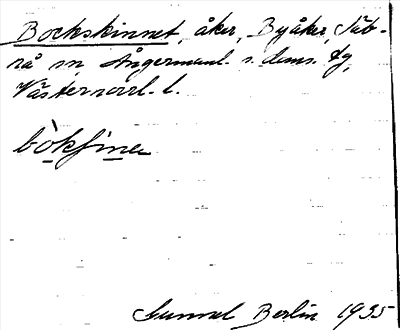 Bockskinnet, åker, Byåker, Säb-
rå sn, Ångermanl. s. doms. tg,
Västernorrl. l.
bòkʃinen
Gunnel Berlin 1935